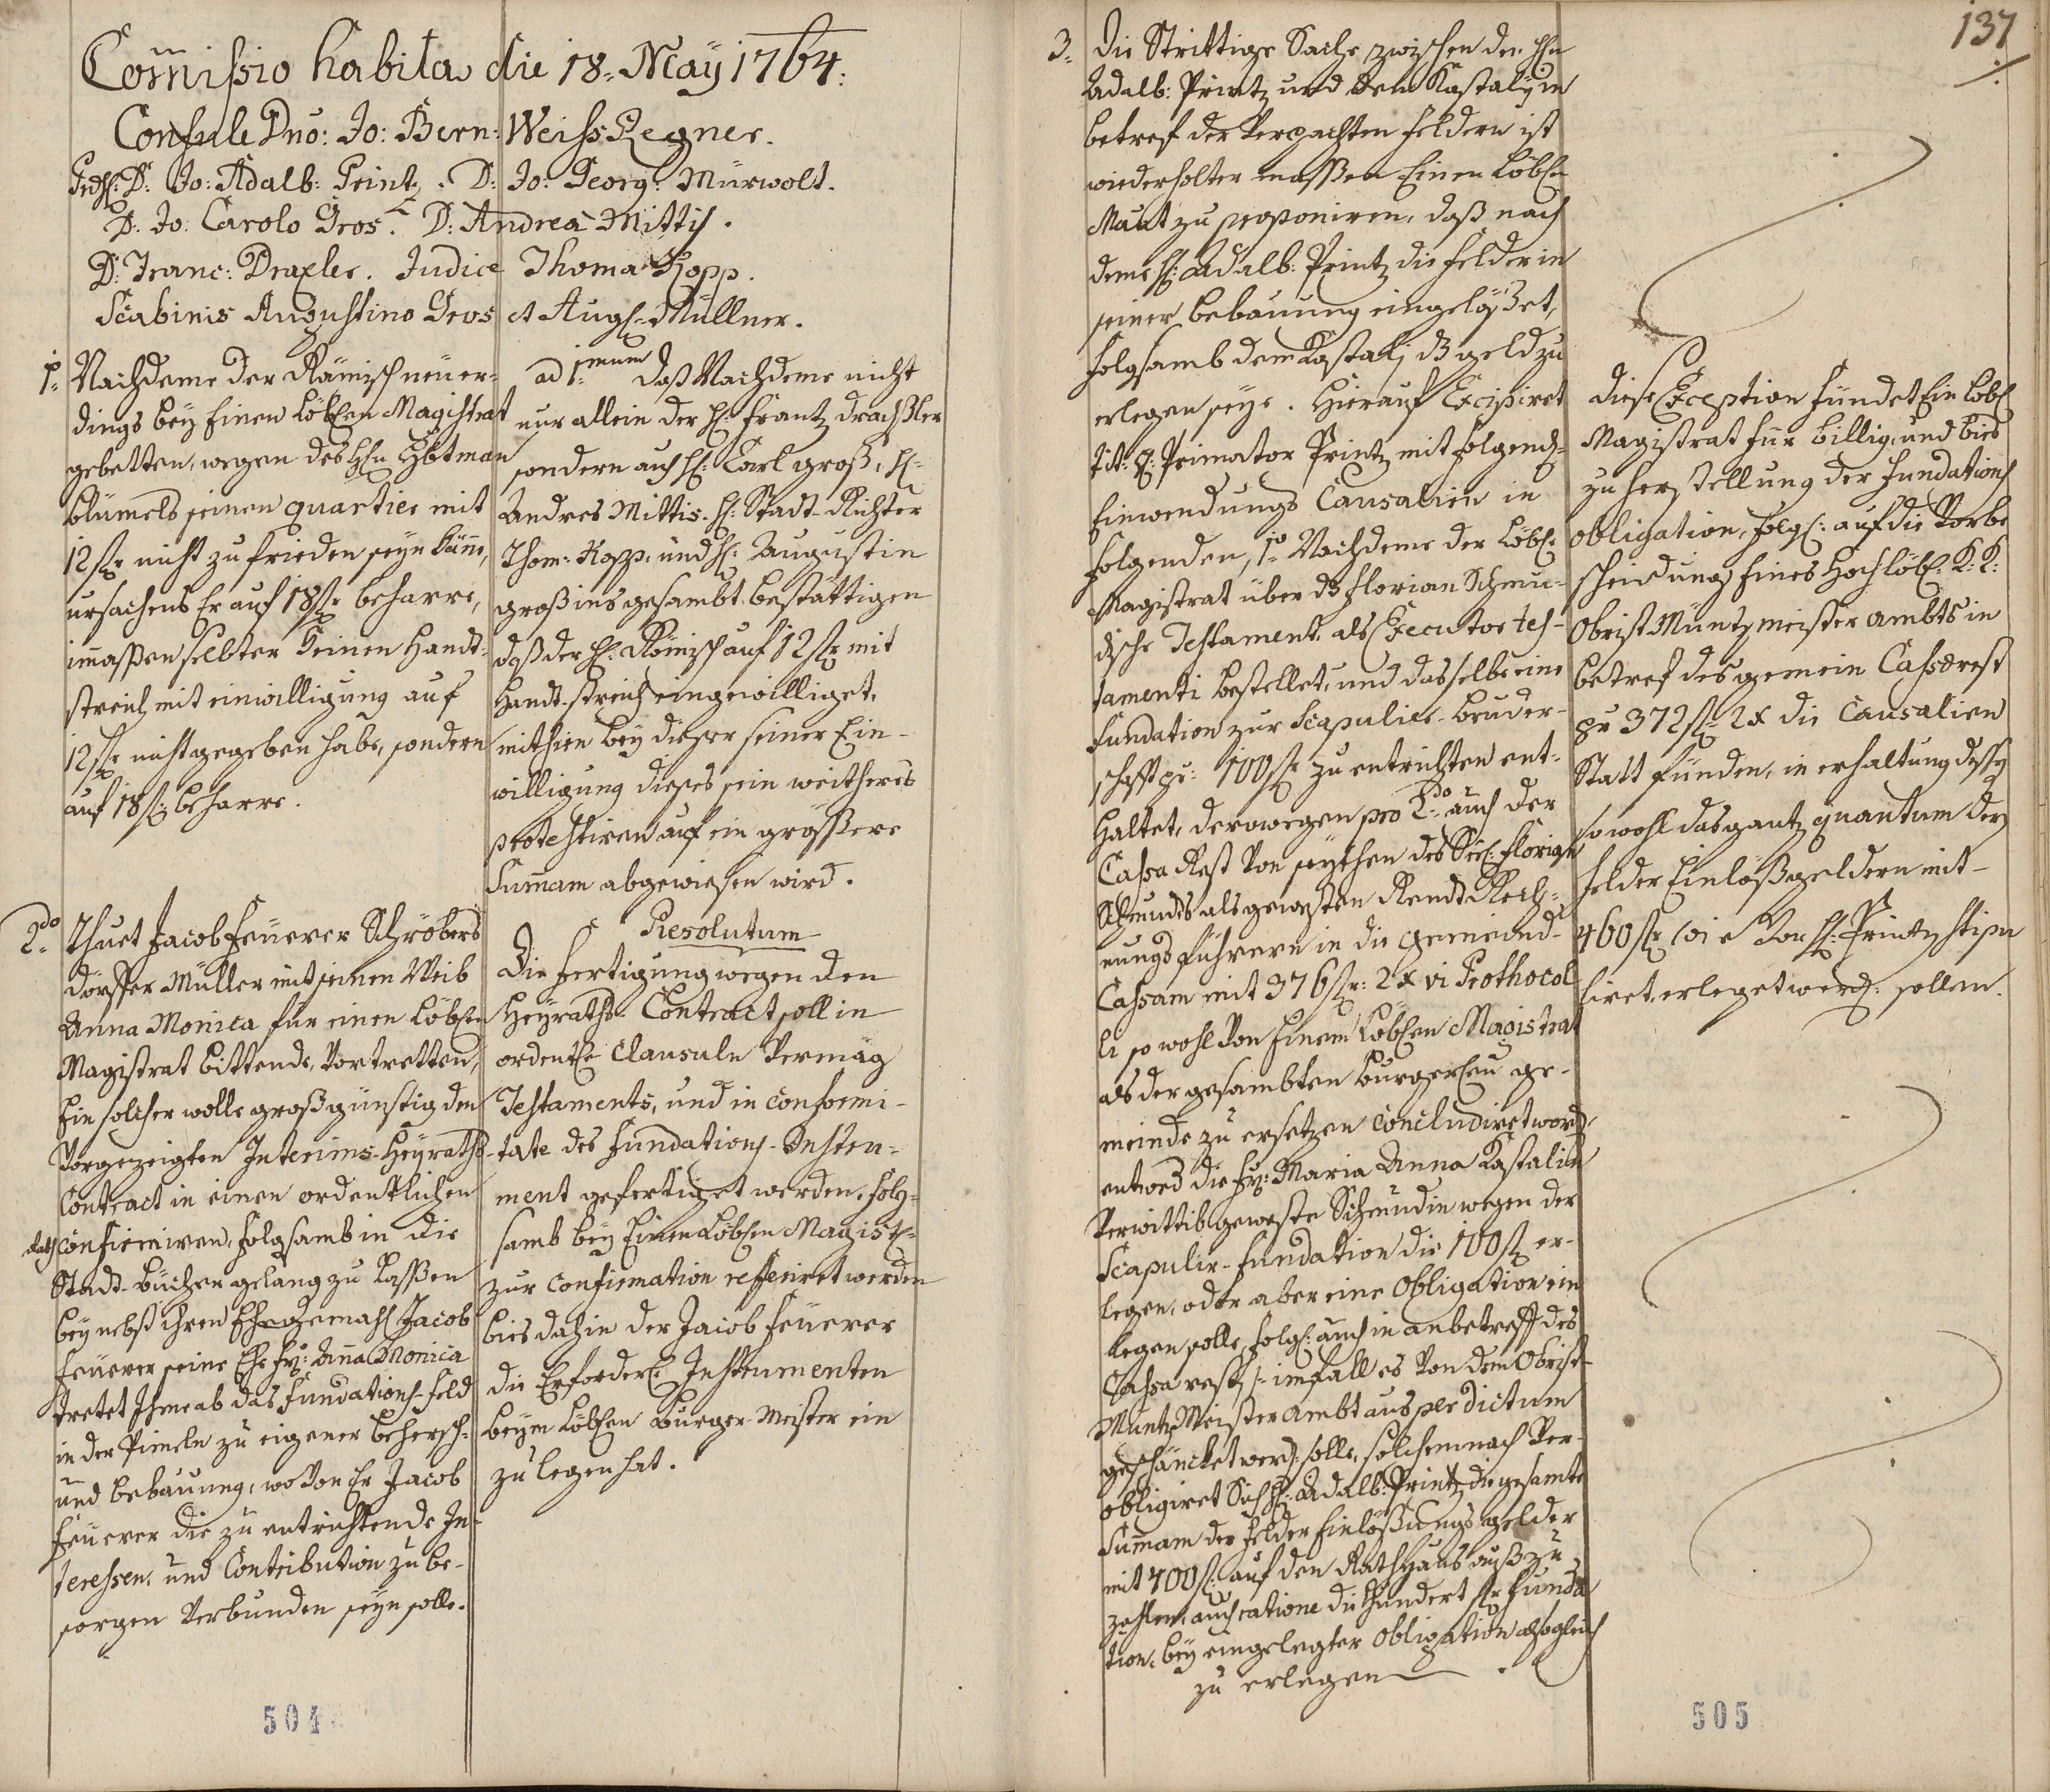 Com̃ißio habita die 18. Maÿ 1764.
Consule Dno: Jo: Bern: Weiss Regner.
Prds: D: Jo: Adalb: Printz. D: Jo: Georg: Mürwolt.
D: Jo: Carolo Gros. D: Andrea Mittis.
D: Franc: Draxler. Judice Thoma Kopp.
Scabinis Augustino Gros et Augs: Müllner.
1º Nachdeme der Römisch neuer-
dings beÿ Einen Löblen Magistrat
gebetten, wegen des Hln Hbtman
Blümels seinen quartier mit
12 fl nicht zu frieden seyn käñe,
ursachens Er auf 18 fl beharre,
im̃assen selbter Keinen Handt-
streich mit einwilligung auf
12 fl nicht gegeben habe, sondern
auf 18 fl beharre.
ad 1mum Daß Nachdeme nicht
nur allein der H: Frantz Drachsler
sondern auch H: Carl Groß, H:
Andres Mittis. H: Stadt-Richter
Thom: Kopp, und H: Augustin
Groß ins gesambt bestättigen
daß der H: Römisch auf 12 fl mit
Handt-streich eingewilliget,
mithien bey dieser seiner Ein-
willigung dieses sein weitheres
protestiren auf ein grössere
Sum̃am abgewiesen wird.
2do Thuet Jacob Feuerer Schröbers
dörffer Müller mit seinen Weib
Anna Monica für einen Löblen
Magistrat bittende, Vortretten,
Ein solcher wolle großgünstig den
Vorgezeigten Interims-Heÿraths-
Contract in einen ordentlichen
confirmiren, folgsamb in die
Stadt-Bücher gelang zu lassen
beynebst ihren Ehegemahl Jacob
Feuerer seine Ehe Fr: Aña Monica
tretet Ihme ab das Fundations-Feld
in der Pimeln zu eigener behersch-
und bebauung, wo Von Er Jacob
Feuerer die zu entrichtende In-
teressen, und Contribution zu be-
sorgen Verbunden seyn solle.
Resolutum
Die Fertigung wegen den
Heÿraths-Contract soll in
ordentle Clausuln Vermäg
Testaments, und in conformi-
tate des Fundations-Instru-
ment gefertiget werden, folg-
samb beÿ Einen Löblen Magist:
zur confirmation refferiret werden
bies dahin der Jacob Feuerer
die Erforderle Instrumenten
beym Löblen Burger-Meister ein
zu legen hat.
504
137
3. Die Strittige Sache zwischen den Hln
Adalb: Printz und dem Kastalÿ in
betref der Verpachten Feldern ist
wiederholter massen Einen Löblen
Mant zu proponiren, daß nach
deme H: Adalb: Printz die Felder in
seiner bebauung eingelöset,
folgsamb dem Kastalj ds geld zu
erlegen seye. Hierauf Excipiret
Tit: H: Primator Printz mit folgend-
Einwendungs Causalien in
folgenden, 1º Nachdeme der Löbl:
Magistrat über ds Florian Schmu-
dische Testament, als Executor tes-
tamenti bestellet, und dasselbe eine
Fundation zur Scapulier-Bruder-
schafft pr: 100 fl zu entrichten ent-
haltet, derowegen pro 2do auch der
Cassa Rest Von seythen des Seel: Florian
Schmudts als gewesten Rendt Rech-
nungs führern in die gemeind-
Cassam mit 376 fl: 2 x vi Prothocol
li so wohl Von Einem Löblen Magistrat
als der gesambten burgerlen ge-
meinde zu ersetzen concludiret word,
entwed die Fr: Maria Anna Kastalin
Verwittib geweste Schmudin wegen der
Scapulir-Fundation die 100 fl er-
legen, oder aber eine Obligation ein
legen solle, folg: auch in anbetreff des
Cassa rests im fall es Von dem Obrist-
Müntz Meister Ambt aus per dictum
geschäncket werd: solle, solchemnach Ver-
obligiret Sich H: Adalb: Printz die gesamte
Sum̃am der Felder Einlössungs gelder
mit 400 fl: auf den Rathhaus auß zu
zahlen, auch ratione die Hundert fl Funda
tion, beÿ eingelegter Obligation alsogleich
zu erlegen.
Diese Exception fündet Ein Löbl:
Magistrat für billig, und bies
zu Herstellung der Fundations
obligation, folg: auf die Vorbe
scheidung Eines Hochlöbl: K: K:
Obrist Müntzmeister Ambts in
betref des gemein Cassarest
pr 372 fl 2 x die Causalien
Statt fünden, in erhaltung dessen
so wohl das gantz quantum der
Felder Einlößgeldern mit
460 fl wie Von H: Printz stipu
liret, erleget werd: sollen.
505